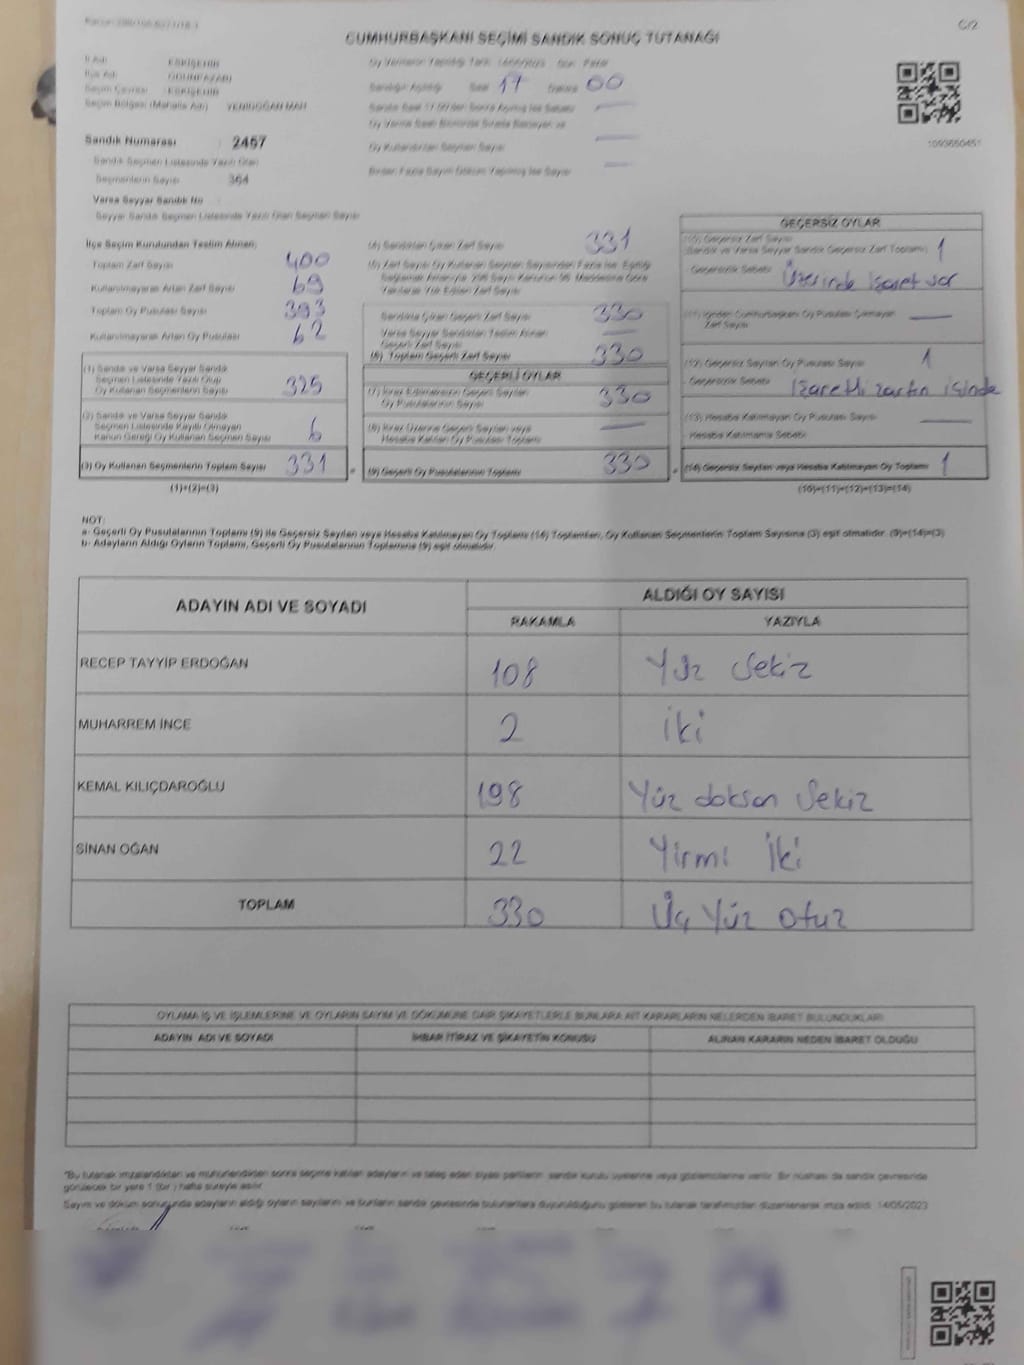 C/2
CUMHURBAŞKANI SEÇİMİ SANDIK SONUÇ TUTANAĞI
İl Adı : ESKİŞEHİR
İlçe Adı : ODUNPAZARI
Seçim Çevresi : ESKİŞEHİR
Seçim Bölgesi (Mahalle Adı) : YENİDOĞAN MAH.
Sandık Numarası : 2457
Sandık Seçmen Listesinde Yazılı Olan
Seçmenlerin Sayısı : 364
Varsa Seyyar Sandık No
Seyyar Sandık Seçmen Listesinde Yazılı Olan Seçmen Sayısı
Oy Vermenin Yapıldığı Tarih: 14/05/2023 Gün: Pazar
Sandığın Açıldığı Saat 17 Dakika 00
Sandık Saat 17.00'den Sonra Açılmış İse Sebebi
Oy Verme Saati Bitiminde Sırada Bekleyen ve
Oy Kullandırılan Seçmen Sayısı
Birden Fazla Sayım Döküm Yapılmış İse Sayısı
1093650451
İlçe Seçim Kurulundan Teslim Alınan;
Toplam Zarf Sayısı 400
Kullanılmayarak Artan Zarf Sayısı 69
Toplam Oy Pusulası Sayısı 393
Kullanılmayarak Artan Oy Pusulası 62
(1) Sandık ve Varsa Seyyar Sandık
Seçmen Listesinde Yazılı Olup
Oy Kullanan Seçmenlerin Sayısı 325
(2) Sandık ve Varsa Seyyar Sandık
Seçmen Listesinde Kayıtlı Olmayan
Kanun Gereği Oy Kullanan Seçmen Sayısı 6
(3) Oy Kullanan Seçmenlerin Toplam Sayısı 331
(1)+(2)=(3)
(4) Sandıktan Çıkan Zarf Sayısı 331
(5) Zarf Sayısı Oy Kullanan Seçmen Sayısından Fazla İse, Eşitliği
Sağlamak Amacıyla, 298 Sayılı Kanunun 98. Maddesine Göre
Yakılarak Yok Edilen Zarf Sayısı
Sandıkta Çıkan Geçerli Zarf Sayısı 330
Varsa Seyyar Sandıktan Teslim Alınan
Geçerli Zarf Sayısı
(6) Toplam Geçerli Zarf Sayısı 330
GEÇERLİ OYLAR
(7) İtiraz Edilmeksizin Geçerli Sayılan
Oy Pusulalarının Sayısı 330
(8) İtiraz Üzerine Geçerli Sayılan veya
Hesaba Katılan Oy Pusulası Toplamı
(9) Geçerli Oy Pusulalarının Toplamı 330
GEÇERSİZ OYLAR
(10) Geçersiz Zarf Sayısı
(Sandık ve Varsa Seyyar Sandık Geçersiz Zarf Toplamı) 1
Geçersizlik Sebebi Üzerinde işaret var
(11) İçinden Cumhurbaşkanı Oy Pusulası Çıkmayan
Zarf Sayısı
(12) Geçersiz Sayılan Oy Pusulası Sayısı 1
Geçersizlik Sebebi İşaretli zarfın içinde
(13) Hesaba Katılmayan Oy Pusulası Sayısı
Hesaba Katılmama Sebebi
(14) Geçersiz Sayılan veya Hesaba Katılmayan Oy Toplamı 1
(10)+(11)+(12)+(13)=(14)
NOT:
a- Geçerli Oy Pusulalarının Toplamı (9) ile Geçersiz Sayılan veya Hesaba Katılmayan Oy Toplamı (14) Toplamları, Oy Kullanan Seçmenlerin Toplam Sayısına (3) eşit olmalıdır. (9)+(14)=(3)
b- Adayların Aldığı Oyların Toplamı, Geçerli Oy Pusulalarının Toplamına (9) eşit olmalıdır.
ADAYIN ADI VE SOYADI ALDIĞI OY SAYISI
RAKAMLA YAZIYLA
RECEP TAYYİP ERDOĞAN 108 Yüz Sekiz
MUHARREM İNCE 2 İki
KEMAL KILIÇDAROĞLU 198 Yüz doksan Sekiz
SİNAN OĞAN 22 Yirmi İki
TOPLAM 330 Üç Yüz Otuz
OYLAMA İŞ VE İŞLEMLERİNE VE OYLARIN SAYIM VE DÖKÜMÜNE DAİR ŞİKAYETLERLE BUNLARA AİT KARARLARIN NELERDEN İBARET BULUNDUKLARI
ADAYIN ADI VE SOYADI İHBAR İTİRAZ VE ŞİKAYETİN KONUSU ALINAN KARARIN NEDEN İBARET OLDUĞU
"Bu tutanak imzalandıktan ve mühürlendikten sonra seçime katılan adayların ve talep eden siyasi partilerin sandık kurulu üyelerine veya gözlemcilerine verilir. Bir nüshası da sandık çevresinde
görülecek bir yere 1 (bir) hafta süreyle asılır.
Sayım ve döküm sonucunda adayların aldığı oyların sayılarını ve bunların sandık çevresinde bulunanlara duyurulduğunu gösteren bu tutanak tarafımızdan düzenlenerek imza edildi. 14/05/2023